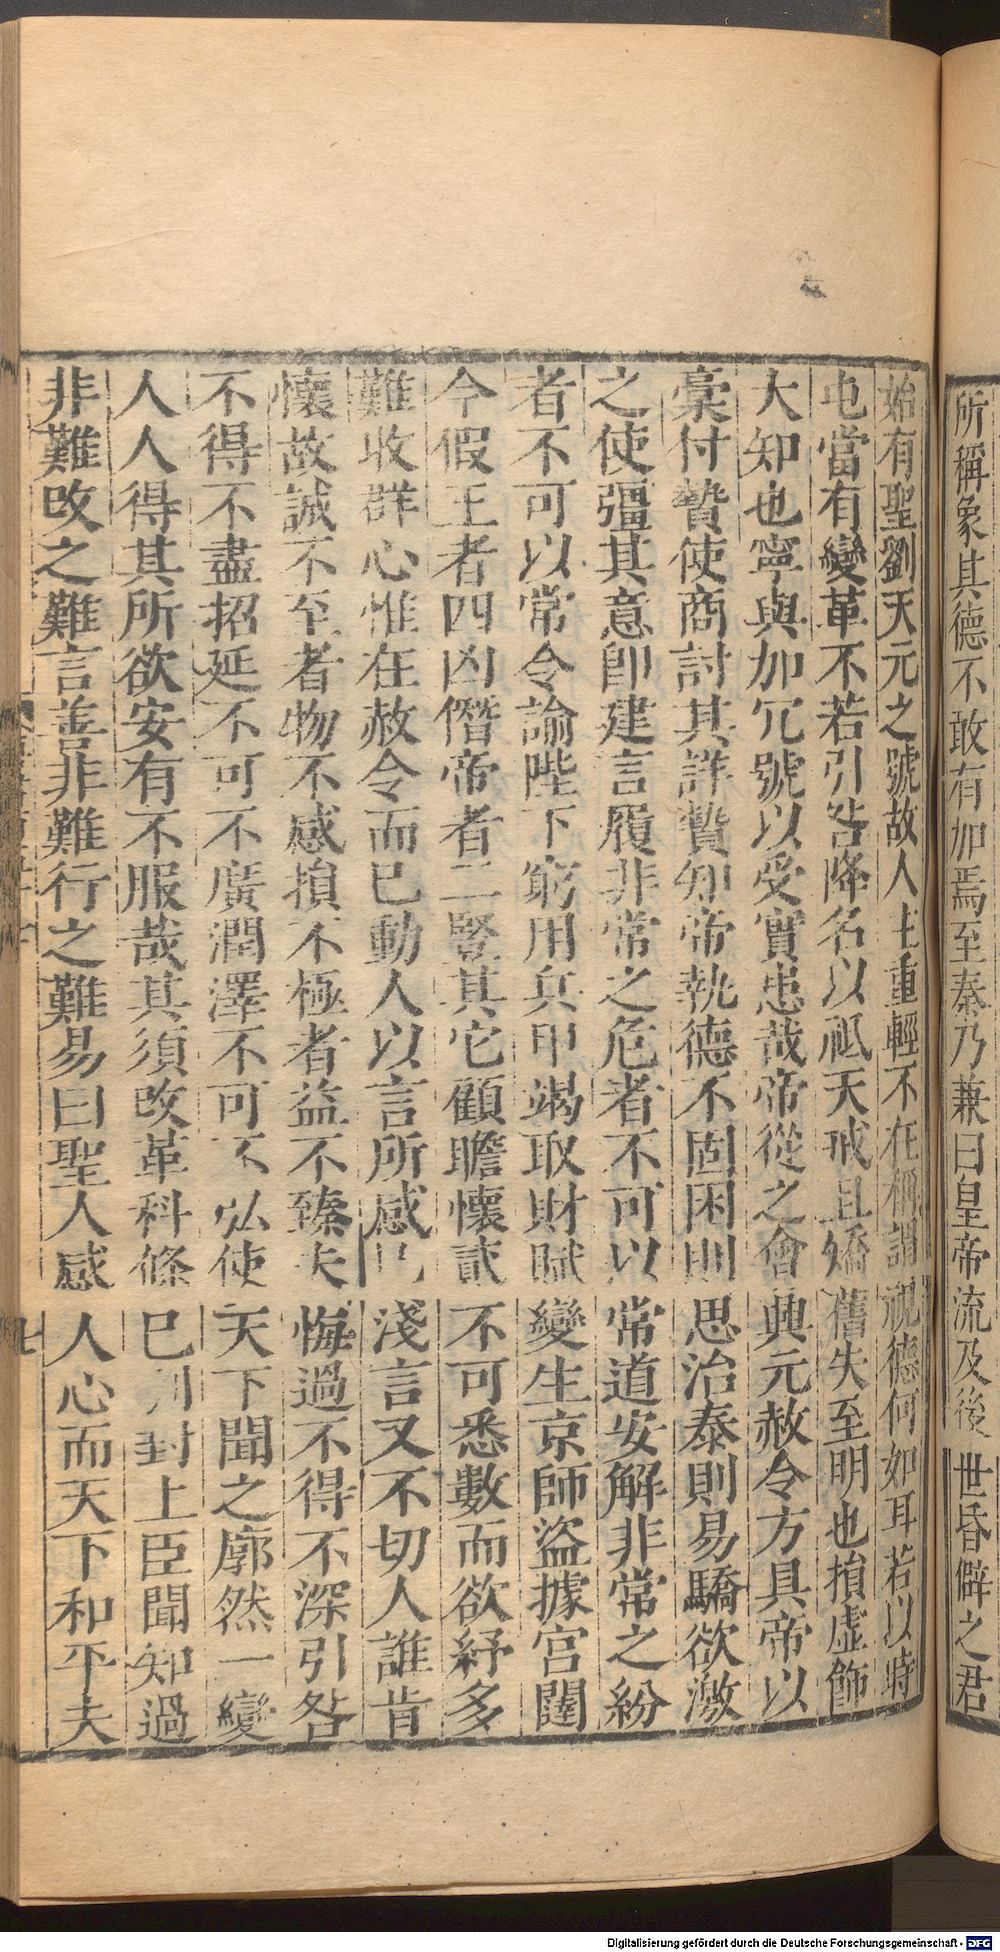 所稱象其德不敢有加焉至秦乃兼曰皇帝流及後世昏僻之君
始有聖劉天元之號故人主重輕不在稱謂視德何如耳若以時
屯當有變革不若引咎降名以祗天戒且矯舊失至明也損虛飾
大知也寧與加冗號以受實患哉帝從之會興元赦令方具帝以
稾付贄使商討其詳贄知帝執德不固困則思治泰則易驕欲激
之使彊其意卽建言履非常之危者不可以常道安解非常之紛
者不可以常令諭陛下窮用兵甲竭取財賦變生京師盜據宮闥
今假王者四凶僭帝者二豎其它顧瞻懷貳不可悉數而欲紓多
難收群心惟在赦令而已動人以言所感已淺言又不切人誰肯
懷故誠不至者物不感損不極者益不臻夫悔過不得不深引咎
不得不盡招延不可不廣潤澤不可不弘使天下聞之廓然一變
人人得其所欲安有不服哉其須改革科條已別封上臣聞知過
非難改之難言善非難行之難易曰聖人感人心而天下和平夫
Digitalisierung gefördert durch die Deutsche Forschungsgemeinschaft - DFG